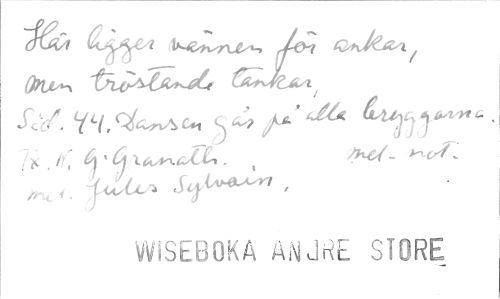 Här ligger vännen för ankar,
men tröstande tankar,
Sid. 44. Dansen går på alla bryggorna.
Tx. N. G. Granath. mel. not.
mel. Jules Sylvain.
WISEBOKA ANDRE STORE